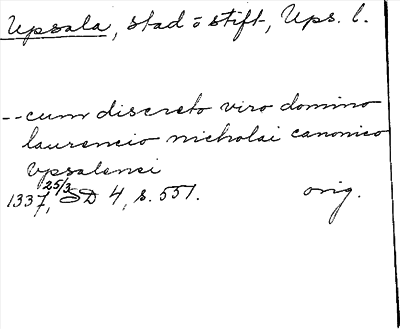 Upsala, stad o stift, Ups. l.
-- cum discreto viro domino
laurencio nicholai canonico
vpsalensi
1337, 25/3 SD 4, s. 551. orig.